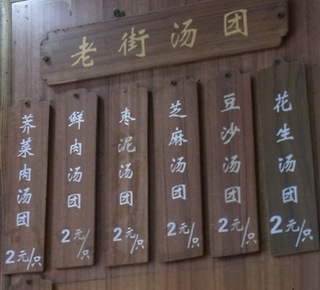 老街汤团
荠菜肉汤团 2元/只
鲜肉汤团 2元/只
枣泥汤团 2元/只
芝麻汤团 2元/只
豆沙汤团 2元/只
花生汤团 2元/只